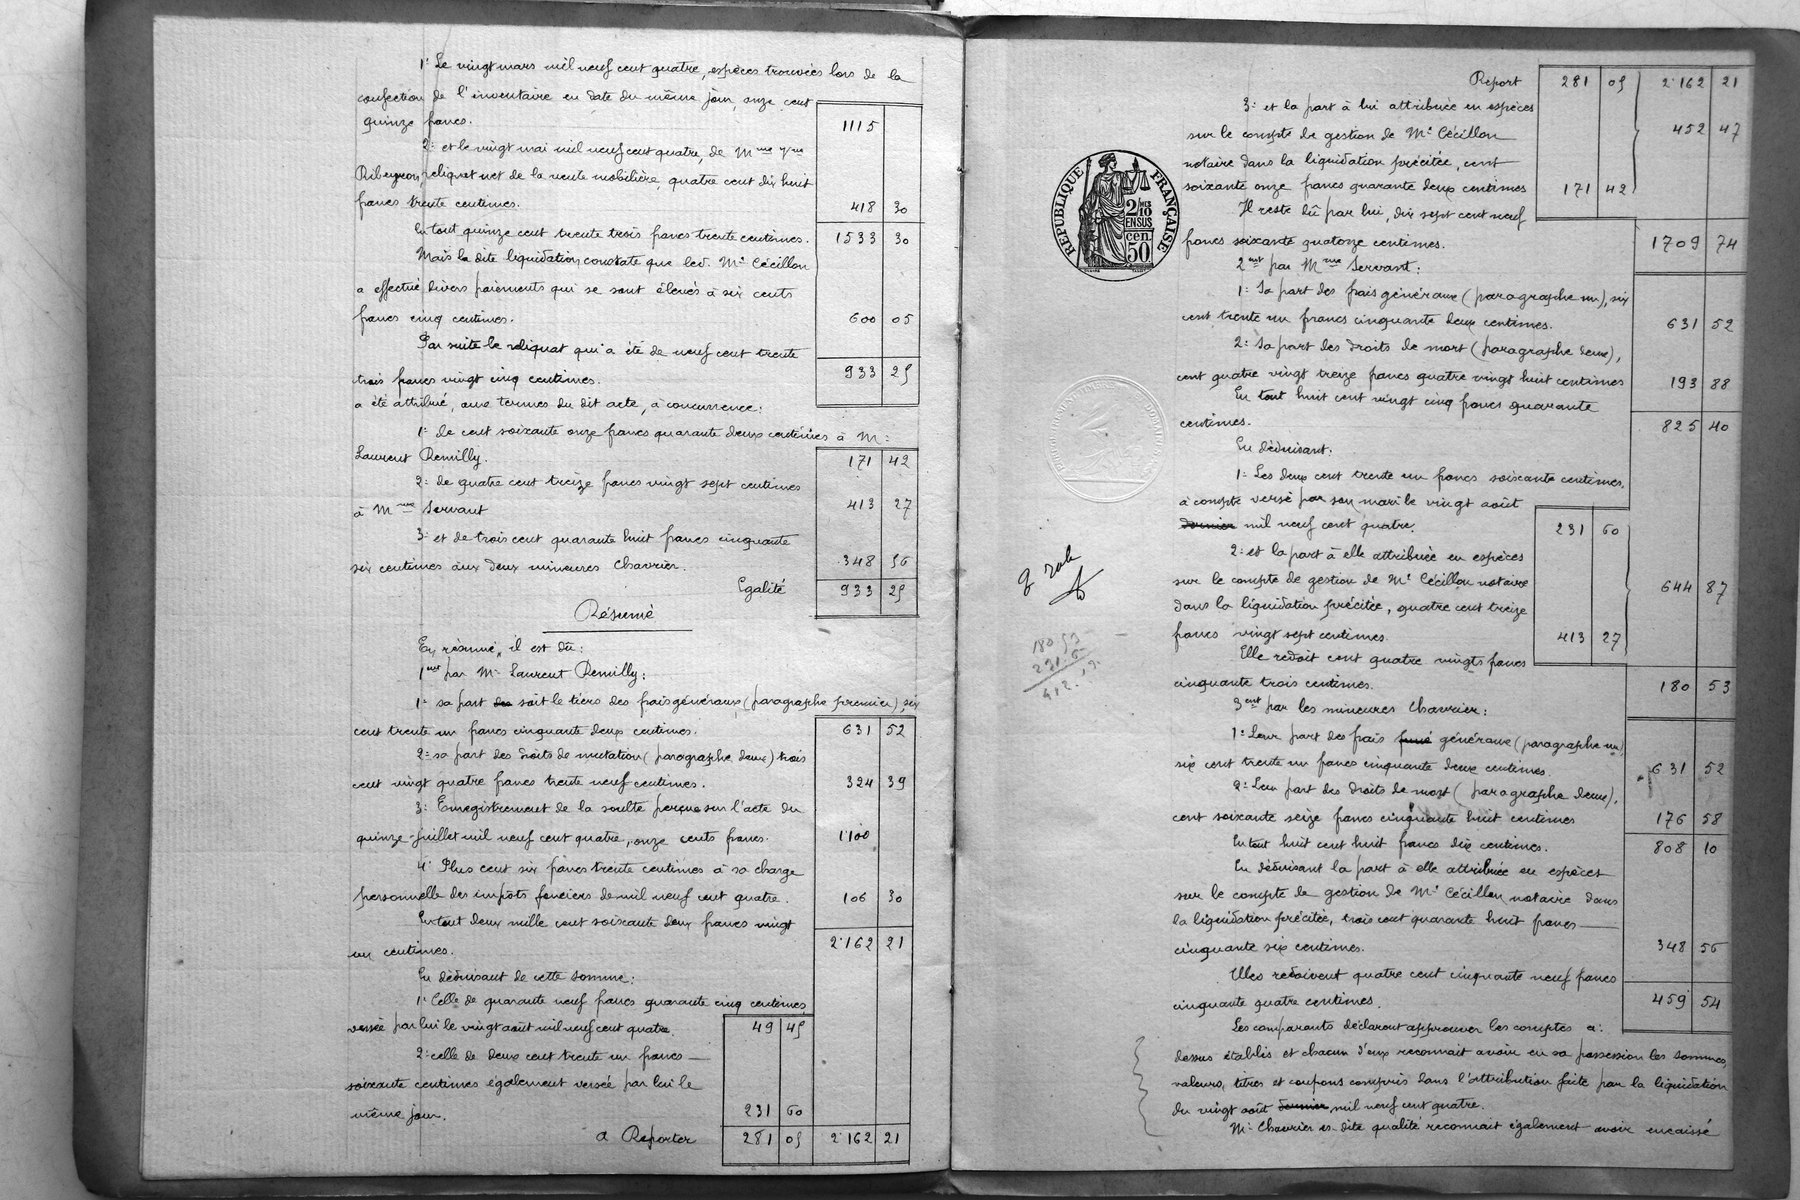 1º Le vingt mars mil neuf cent quatre, espèces trouvées lors de la
confection de l'inventaire en date du même jour, onze cent
quinze francs. 1115
2º et le vingt mai mil neuf cent quatre, de Mme Vve
Ribeyron, reliquat net de la vente mobilière, quatre cent dix huit
francs trente centimes. 418 30
En tout quinze cent trente trois francs trente centimes. 1533 30
Mais la dite liquidation constate que led. Me Cécillon
a effectué divers paiements qui se sont élevés à six cents
francs cinq centimes. 600 05
Par suite le reliquat qui a été de neuf cent trente
trois francs vingt cinq centimes. 933 25
a été attribué, aux termes du dit acte, à concurrence:
1º de cent soixante onze francs quarante deux centimes à Mr
Laurent Remilly. 171 42
2º de quatre cent treize francs vingt sept centimes
à Mme Servant 413 27
3º et de trois cent quarante huit francs cinquante
six centimes aux deux mineures Chavrier. 348 56
Egalité 933 25
Résumé
En résumé, il est dû:
1ent par Mr Laurent Remilly:
1º sa part des soit le tiers des frais généraux (paragraphe premier), six
cent trente un francs cinquante deux centimes. 631 52
2º sa part des droits de mutation (paragraphe deux) trois
cent vingt quatre francs trente neuf centimes. 324 39
3º Enregistrement de la soulte perçue sur l'acte du
quinze juillet mil neuf cent quatre, onze cents francs. 1100
4º Plus cent six francs trente centimes à sa charge
personnelle des impôts fonciers de mil neuf cent quatre. 106 30
En tout deux mille cent soixante deux francs vingt
un centimes. 2162 21
En déduisant de cette somme:
1º Celle de quarante neuf francs quarante cinq centimes
versée par lui le vingt août mil neuf cent quatre. 49 45
2º celle de deux cent trente un francs
soixante centimes également versée par lui le
même jour. 231 60
A Reporter 281 05 2162 21
Report 281 05 2162 21
3º et la part à lui attribuée en espèces
sur le compte de gestion de Me Cécillon 452 47
notaire dans la liquidation précitée, cent
soixante onze francs quarante deux centimes 171 42
Il reste dû par lui, dix sept cent neuf
francs soixante quatorze centimes. 1709 74
RÉPUBLIQUE FRANÇAISE
2/10 EN SUS
50 cen.
2ent par Mme Servant:
1º Sa part des frais généraux (paragraphe un), six
cent trente un francs cinquante deux centimes. 631 52
2º Sa part des droits de mort (paragraphe deux),
cent quatre vingt treize francs quatre vingt huit centimes 193 88
En tout huit cent vingt cinq francs quarante
centimes. 825 40
En déduisant:
1º Les deux cent trente un francs soixante centimes,
à compte versé par son mari le vingt août
dernier mil neuf cent quatre. 231 60
2º et la part à elle attribuée en espèces
sur le compte de gestion de Me Cécillon notaire 644 87
dans la liquidation précitée, quatre cent treize
francs vingt sept centimes. 413 27
Elle redoit cent quatre vingts francs
cinquante trois centimes. 180 53
3ent par les mineures Chavrier:
1º Leur part des frais généraux (paragraphe un)
six cent trente un francs cinquante deux centimes. 631 52
2º Leur part des droits de mort (paragraphe deux),
cent soixante seize francs cinquante huit centimes 176 58
En tout huit cent huit francs dix centimes. 808 10
En déduisant la part à elle attribuée en espèces
sur le compte de gestion de Me Cécillon notaire dans
la liquidation précitée, trois cent quarante huit francs
cinquante six centimes. 348 56
Elles redoivent quatre cent cinquante neuf francs
cinquante quatre centimes. 459 54
Les comparants déclarent approuver les comptes ci-
dessus établis et chacun d'eux reconnait avoir en sa possession les sommes,
valeurs, titres et coupons compris dans l'attribution faite par la liquidation
du vingt août dernier mil neuf cent quatre.
Mr Chavrier es-dite qualité reconnait également avoir encaissé